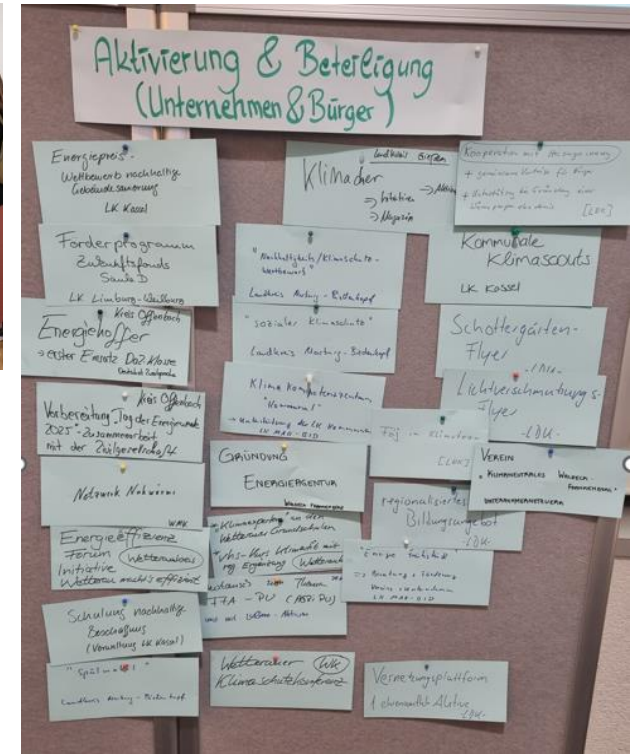 Aktivierung & Beteiligung
(Unternehmen & Bürger)
Energiepreis-
Wettbewerb nachhaltige
Gebäudesanierung
LK Kassel
Förderprogramm
Zukunftsfonds
LK Limburg-Weilburg
Kreis Offenbach
Energiekoffer
→ erster Einsatz DaZ-Klasse
Kreis Offenbach
Vorbereitung "Tag der Energiewende
2025" - Zusammenarbeit
mit der Zivilgesellschaft
Netzwerk Nahwärme
WMK
Energieeffizienz
Forum
Initiative Wetteraukreis
Wetterau macht's effizient
Schulung nachhaltige
Beschaffung
(Verwaltung LK Kassel)
Landkreis Marburg-Biedenkopf
Landkreis Gießen
Klimacher
→ Initiativen
→ Magazin
"Nachhaltigkeits/Klimaschutz-
Wettbewerb"
Landkreis Marburg-Biedenkopf
"sozialer Klimaschutz"
Landkreis Marburg-Biedenkopf
Klima Kompetenzzentrum
"Kommunal"
→ Unterstützung der LK Kommunen
LK MAR-BID
GRÜNDUNG
ENERGIEAGENTUR
WALDECK-FRANKENBERG
in den
Wetterauer Grundschulen
Vhs-Kurs klimafit mit
reg. Ergänzung
Wetterauer WK
Klimaschutzkonferenz
Kooperation mit
[LDK]
Kommunale
Klimascouts
LK Kassel
Schottergärten-
Flyer
-LDK-
Lichtverschmutzungs-
Flyer
-LDK-
FÖJ im Klimateam
[LDK]
VEREIN
"KLIMANEUTRALES WALDECK-
FRANKENBERG"
UNTERNEHMERNETZWERK
regionalisiertes
Bildungsangebot
-LDK-
→ Beratung + Förderung
LK MAR-BID
Vernetzungsplattform
f. ehrenamtlich Aktive
-LDK-